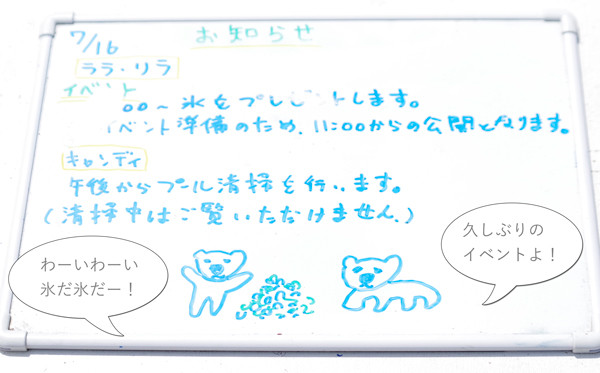 7/16
お知らせ
ララ・リラ
イベント
00～氷をプレゼントします。
イベント準備のため、11:00からの公開となります。
キャンディ
午後からプール清掃を行います。
(清掃中はご覧いただけません。)
わーいわーい
氷だ氷だー！
久しぶりの
イベントよ！